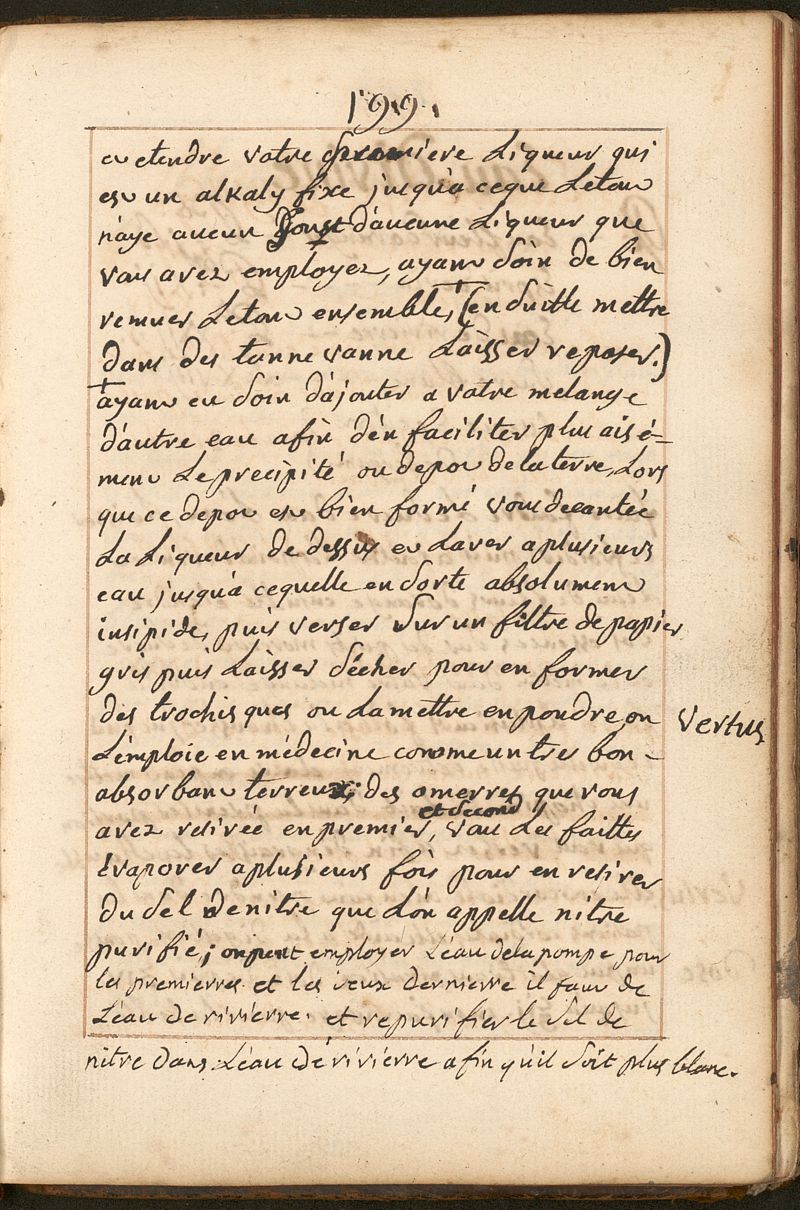 199.
et etendre votre premiere Liqueur qui
est un alkaly fixe jusqu'a ceque Letout
n'aye aucun Goust d'aucune Liqueur que
vous avez employez, ayant Soin de bien
remuer Letout ensemble, † (en Suitte mettre
dans des tanne vanne Laisser reposer.)
† ayant eu Soin d'ajouter a votre melange
d'autre eau afin d'en faciliter plus aisé-
ment Le precipité ou depot de la terre, Lors
que ce depot est bien formé vous decantée
La Liqueur de dessus et Laver a plusieurs
eau jusqu'a cequelle en Sorte absolument
insipide, puis verser Sur un filtre de papier
gris puis Laisser Sécher pour en former
des trochisques ou La mettre en poudre on vertus
L'emploie en médecine comme un tres bon-
absorbant terreux; des omerres que vous
et Second
avez retirée en premier, vous Les faittes
Evaporer a plusieurs fois pour en retirer
du Sel de nitre que L'on appelle nitre
purifié; on peut employer L'eau de la pompe pour
les premierres et les ieux dernierre il faut de
L'eau de rivierre. et repurifier le Sel de
nitre dans L'eau de rivierre afin qu'il Soit plus blanc.